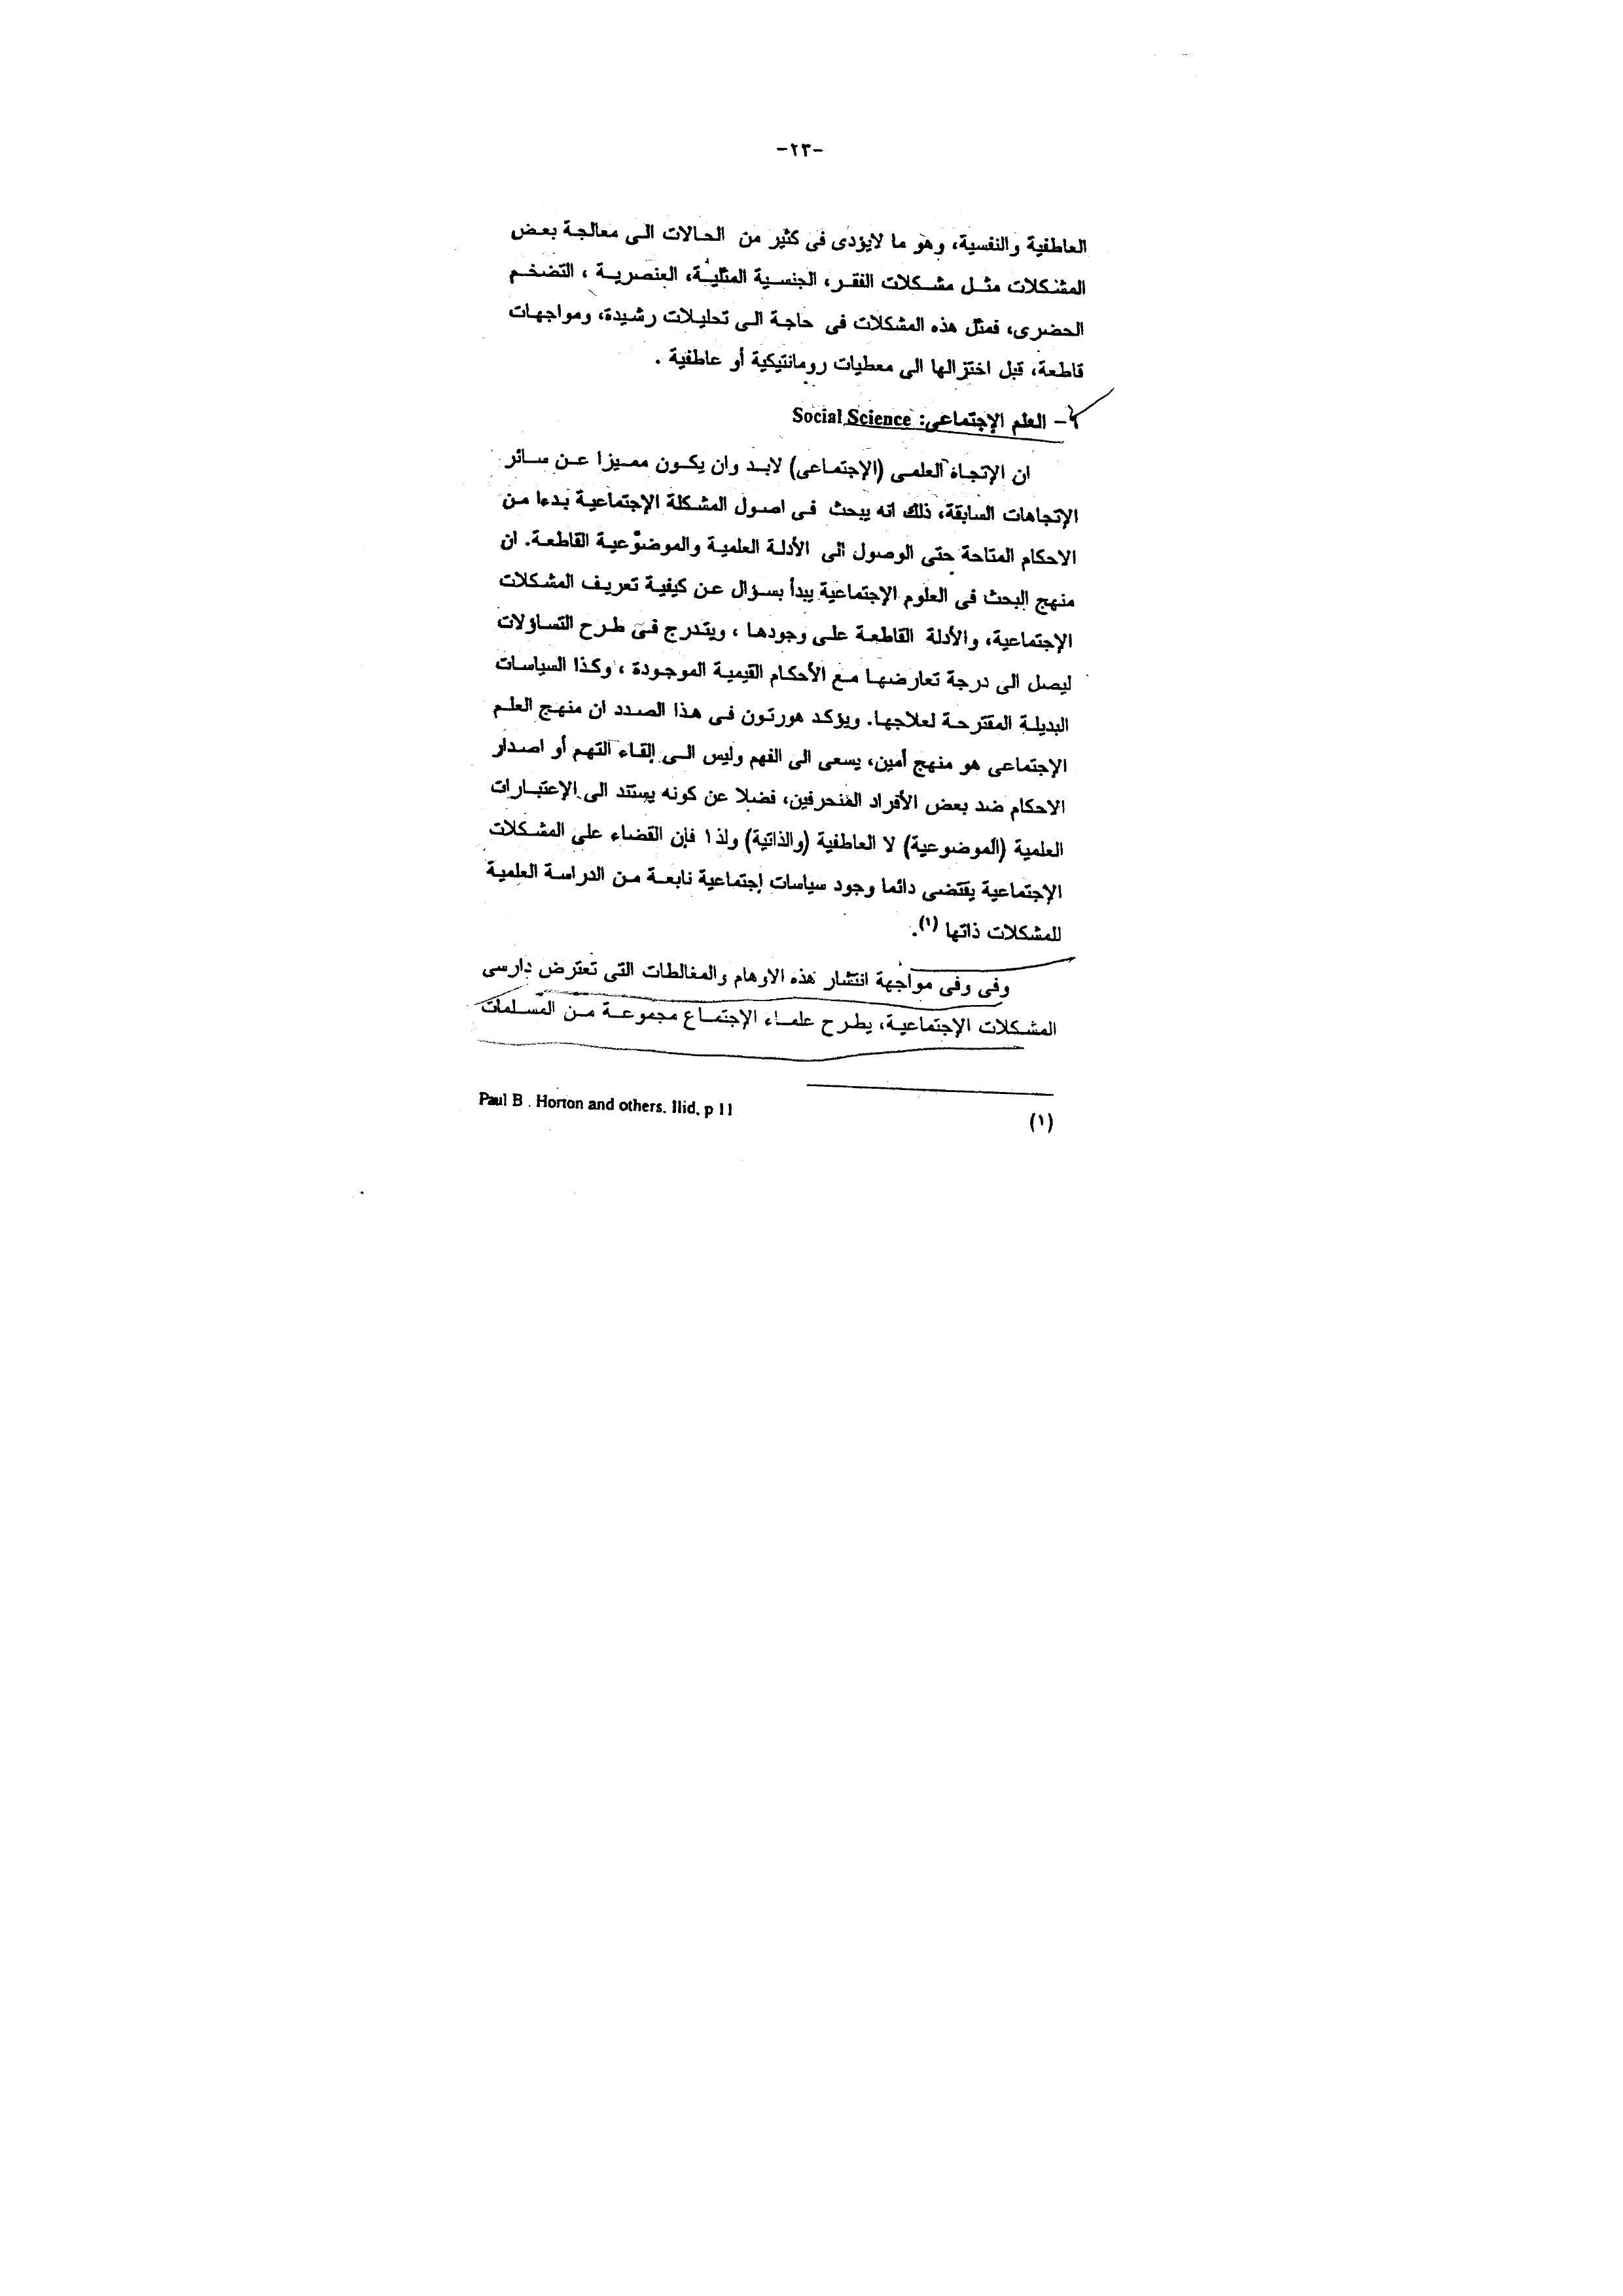 -٢٣-
العاطفية والنفسية، وهو ما لايؤدى فى كثير من الحالات الى معالجة بعض
المشكلات مثل مشكلات الفقر، الجنسية المثلية، العنصرية ، التضخم
الحضرى، فمثل هذه المشكلات فى حاجة الى تحليلات رشيدة، ومواجهات
قاطعة، قبل اختزالها الى معطيات رومانتيكية أو عاطفية .
- العلم الإجتماعى: Social Science
ان الإتجاة العلمى (الإجتماعى) لابد وان يكون مميزا عن سائر
الإتجاهات السابقة، ذلك انه يبحث فى اصول المشكلة الإجتماعية بدءا من
الاحكام المتاحة حتى الوصول الى الأدلة العلمية والموضوعية القاطعة. ان
منهج البحث فى العلوم الإجتماعية يبدأ بسؤال عن كيفية تعريف المشكلات
الإجتماعية، والأدلة القاطعة على وجودها ، ويتدرج فى طرح التساؤلات
ليصل الى درجة تعارضها مع الأحكام القيمية الموجودة ، وكذا السياسات
البديلة المقترحة لعلاجها. ويؤكد هورتون فى هذا الصدد ان منهج العلم
الإجتماعى هو منهج أمين، يسعى الى الفهم وليس الى إلقاء التهم أو اصدار
الاحكام ضد بعض الأفراد المنحرفين، فضلا عن كونه يستند الى الإعتبارات
العلمية (الموضوعية) لا العاطفية (والذاتية) ولذا فإن القضاء على المشكلات
الإجتماعية يقتضى دائما وجود سياسات إجتماعية نابعة من الدراسة العلمية
للمشكلات ذاتها (١).
وفى وفى مواجهة انتشار هذه الاوهام والمغالطات التى تعترض دارسى
المشكلات الإجتماعية، يطرح علماء الإجتماع مجموعة من المسلمات
(١) Paul B . Horton and others. Ilid, p 11